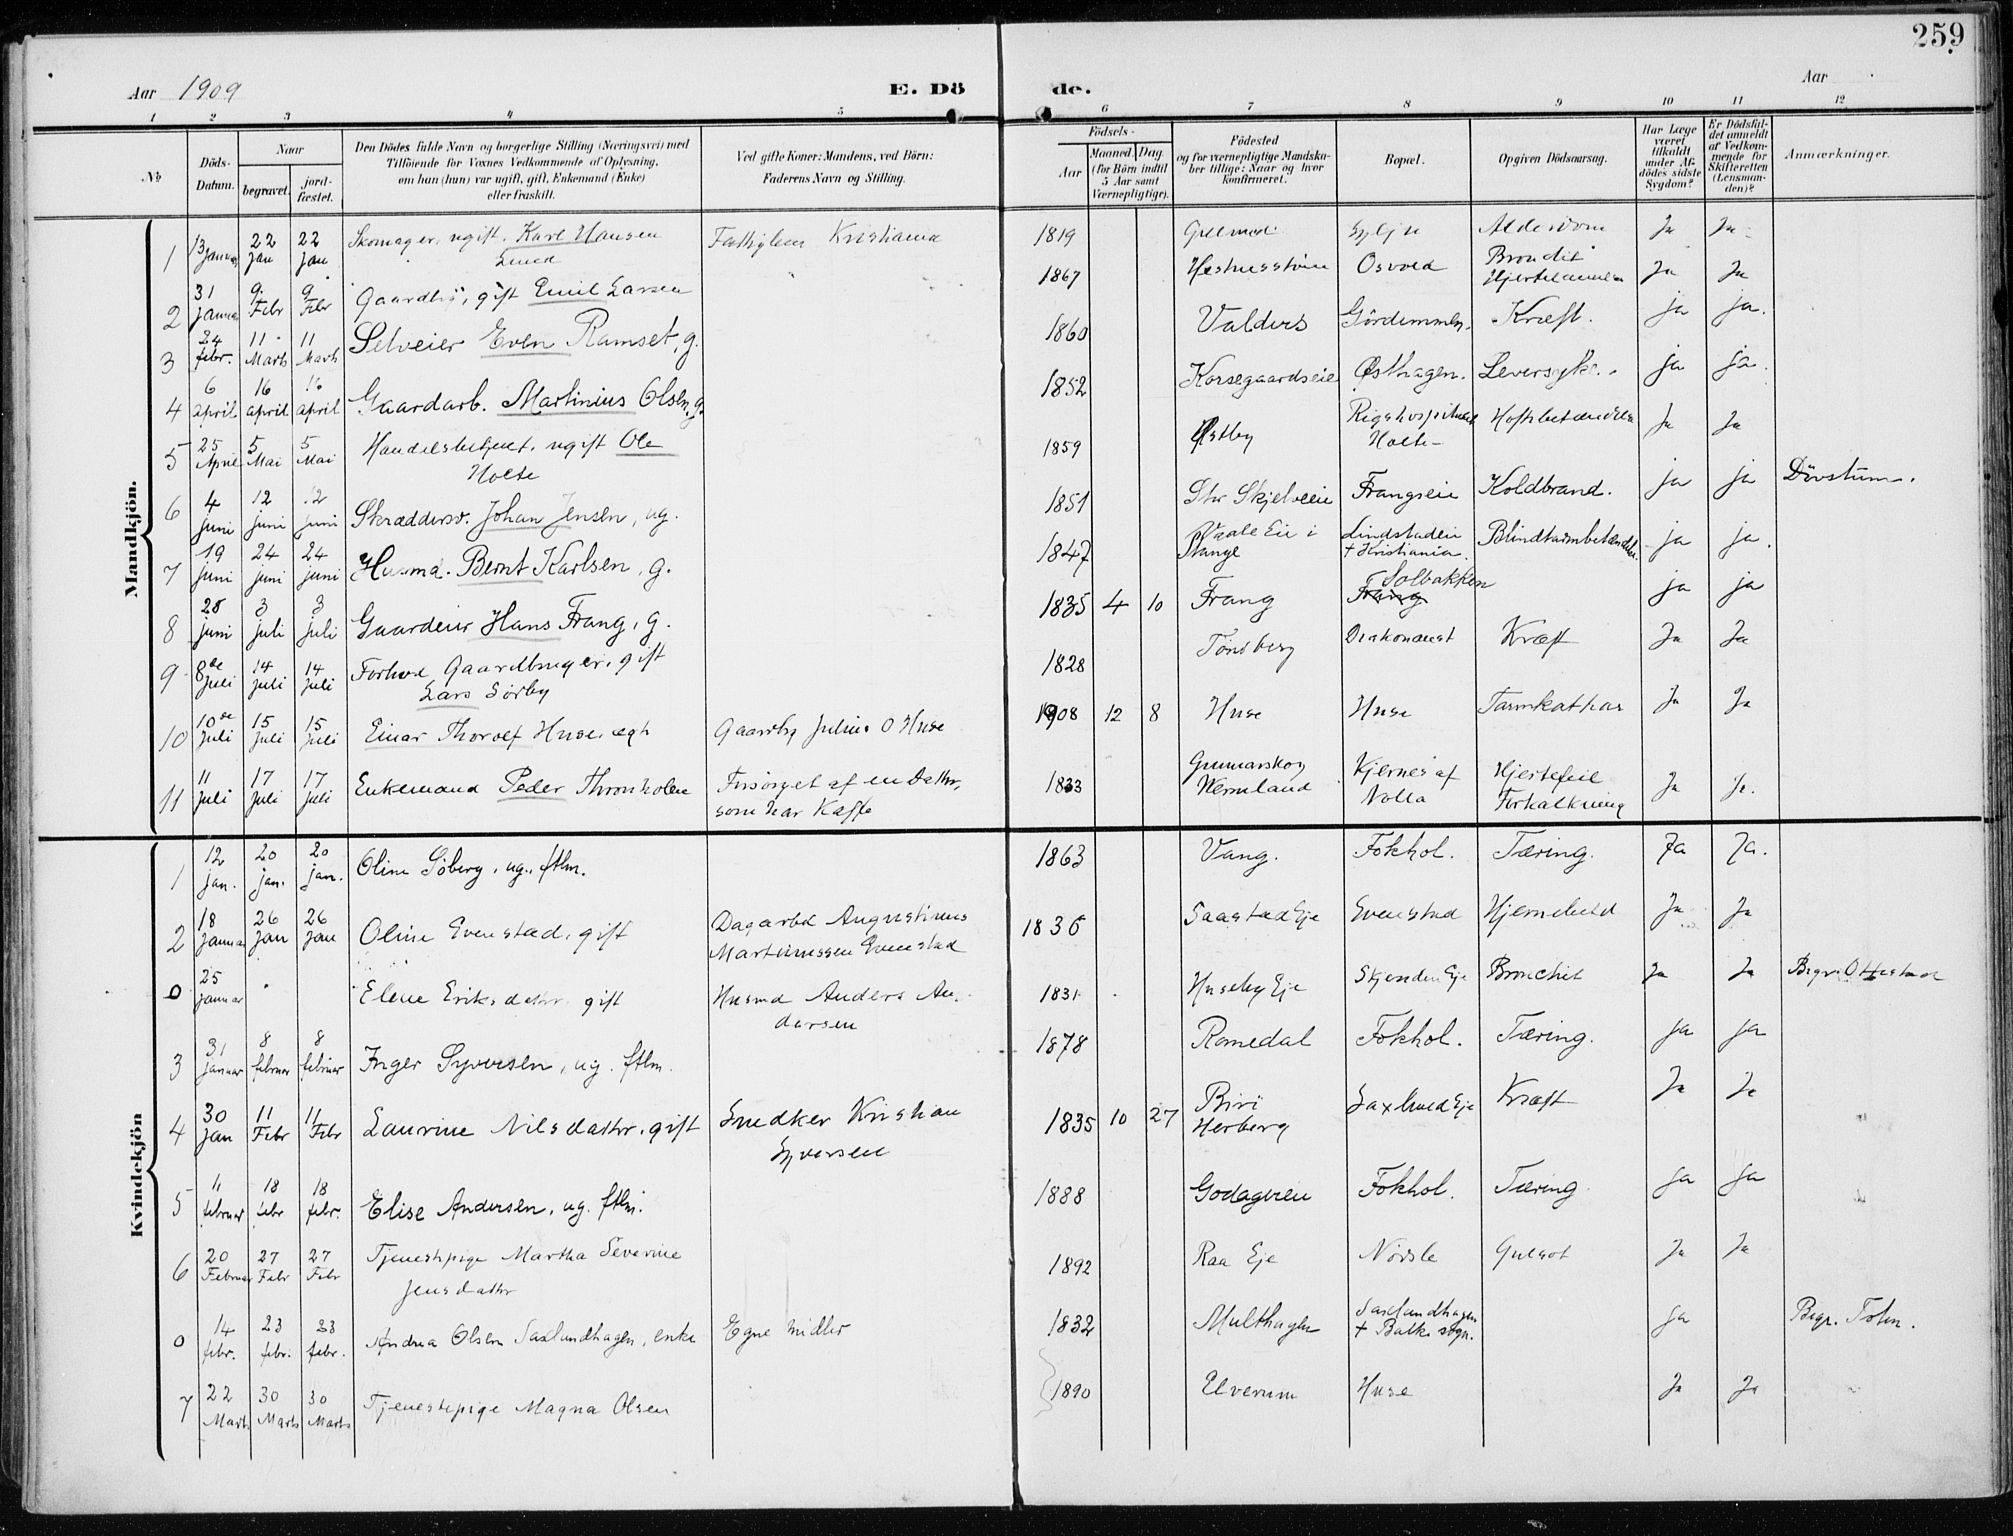 259
Aar 1909
E. Dö
de.
Aar
1 2 3 4 5 6 7 8 9 10 11 12
No
Döds-
Datum.
Naar
begravet.
jord-
fæstet.
Den Dödes fulde Navn og borgerlige Stilling (Næringsvei) med
Tilföiende for Voxnes Vedkommende af Oplysning,
om han (hun) var ugift, gift, Enkemand (Enke)
eller fraskilt.
Ved gifte Koner: Mandens, ved Börn:
Faderens Navn og Stilling.
Födsels-
Aar
Maaned. Dag
(for Börn indtil
5 Aar samt
Værnepligtige).
Födested
og for værnepligtige Mandska-
ber tillige: Naar og hvor
konfirmeret.
Bopæl.
Opgiven Dödsaarsag.
Har Læge
været
tilkaldt
under Af-
dödes sidste
Sygdom?
Er Dödsfal-
det anmeldt
af Vedkom-
mende for
Skifteretten
(Lensman-
den)?
Anmærkninger.
Mandkjön.
1 13 Januar 22 Jan 22 Jan Skomager, ugift. Karl Hansen Lund Kristiania 1819 Alderdom Ja Ja
2 31 Januar 9 Febr 9 Febr gift Emil Larsen 1867 Osvold Ja Ja
3 24 febr. 11 Marts 11 Marts Selveier Even Ramset, g. 1860 Valders Kræft. ja ja.
4 6 april 16 april 16 april Gaardarb. Martinius Olsen, g. 1852 Korsegaardseie Østhagen. Leversyke. ja ja.
5 25 April 5 Mai 5 Mai Handelsbetjent, ugift Ole Holte 1859 Østby Rigshospitalet Holte Hoftebetændelse Ja Ja
6 4 juni 12 juni 12 juni Skræddersv. Johan Jensen, ug. 1851 Str Skjelveeie Frangseie Koldbrand. ja ja Dövstum.
7 19 juni 24 juni 24 juni Husmd. Bernt Karlsen, g. 1847 Eie i Stange Lindstadeie + Kristiania. Blindtarmbetændelse ja ja.
8 28 juni 3 juli 3 juli Gaardeier Hans Frang, g. 1835 4 10 Frang Solbakken Frang ja ja
9 8de Juli 14 Juli 14 Juli Forhvd Gaardbruger, gift Lars Sörby 1828 Tönsberg Kræft Ja Ja
10 10de Juli 15 Juli 15 Juli Einar Thorolf Huse, ægte Gaardbr Julius O Huse 1908 12 8 Huse Huse Tarmkathar Ja Ja
11 11 Juli 17 Juli 17 Juli Enkemand Peder Thronholen Forsörget af en Datter, som har Kaffe 1833 Gunnarskog Wermland Kjernes af Hjertefeil Forkalkning Ja Ja.
Kvindekjön
1 12 jan. 20 jan. 20 jan. Oline Söberg, ug. ftlm. 1863 Vang. Fokhol. Tæring. Ja Ja.
2 18 Januar 26 Jan 26 Jan Oline Evenstad, gift Dagarbd Augustinus Martinussen Evenstad 1836 Saastad Eje Evenstad Ja Ja
0 25 Januar Elene Eriksdatter gift Husmd Anders Andersen 1831 Huseby Eje Skjenden Eje Bronchit Ja Ja Begr. Ottestad
3 31 januar 8 februar 8 februar Inger Syversen, ug. ftlm. 1878 Romedal Fokhol. Tæring. ja ja
4 30 Jan 11 Febr 11 Febr Laurine Nilsdatter, gift Snedker Kristian Syversen 1835 10 27 Biri Herberg Saxlund Eje Kræft Ja Ja
5 11 februar 18 febr 18 febr. Elise Andersen, ug. ftlm. 1888 Godageren Fokhol. Tæring ja ja
6 20 Februar 27 Febr 27 Febr Tjenestepige Martha Severine Jensdatter 1892 Raa Eje Nordsle Gulsot Ja Ja
0 14 febr. 23 febr. 23 febr. Andrea Olsen Saxlundhagen, enke Egne midler 1832 Multhagen Saxlundhagen + Balke sogn. ja Begr. Toten.
7 22 Marts 30 Marts 30 Marts Tjenestepige Magna Olsen 1890 Elverum Huse Ja Ja